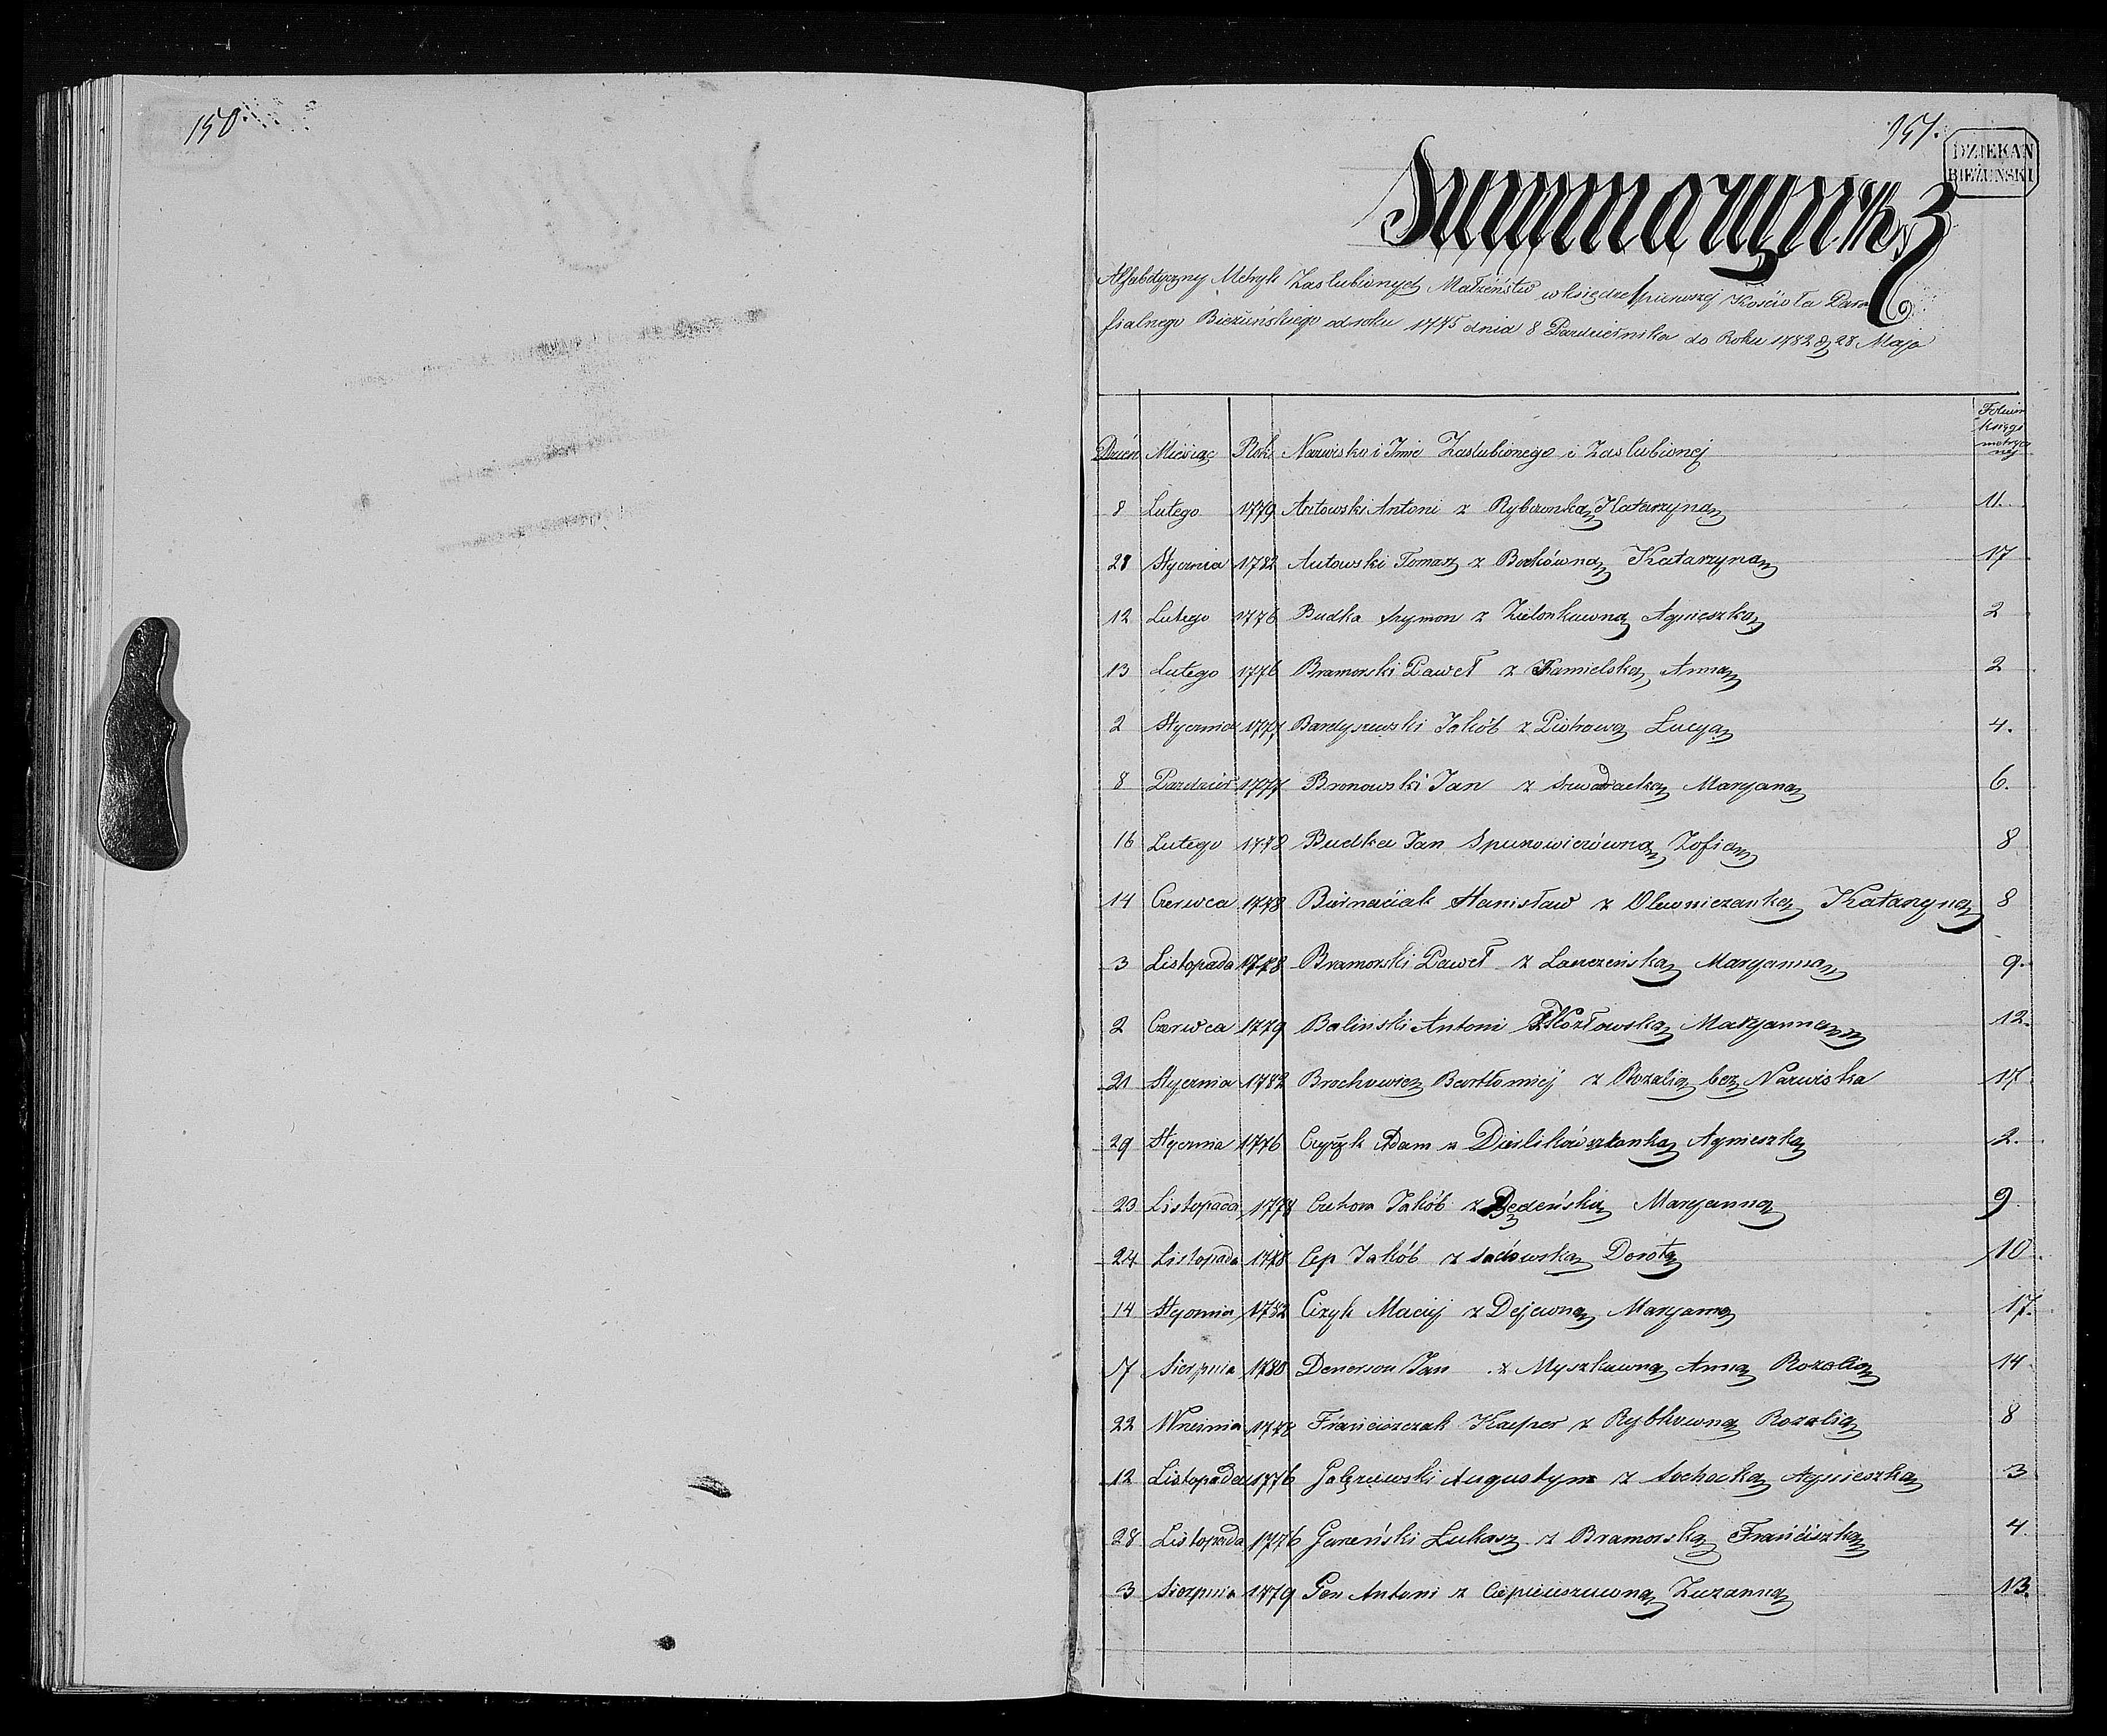 150.
151.
DZIEKAN
BIEŻUŃSKI
Summaryusz
Alfabetyczny Metryk Zaslubionych Małżeństw w księdze pierwszej Kościoła Para
fialnego Bieżuńskiego od roku 1775 dnia 8 Pazdziernika do Roku 1782 d 28 Maja
Dzień Miesiąc Rok Nazwisko i Imie Zaslubionego i Zaslubionej Folium księgi metrycz nej
8 Lutego 1779 Antowski Antoni z Rybczonką Katarzyną 11.
28 Stycznia 1782 Autowski Tomasz z Borkówną Katarzyną 17
12 Lutego 1776 Budka Szymon z Zielonkuwną Agnieszką 2
13 Lutego 1776 Bramorski Paweł z Kamielską Anną 2
2 Stycznia 1777 Bardyszewski Jakób z Piotrową Łucyą 4.
8 Pazdzier 1777 Bronowski Jan z Maryaną 6.
16 Lutego 1778 Budka Jan Spunowiczówną Zofią 8
14 Czerwca 1778 Biernaciak Stanisław z Olewniczanką Katarzyną 8
3 Listopada 1778 Bramorski Paweł z Łaneżeńską Maryanną 9.
2 Czerwca 1779 Balinski Antoni z Kozłowską Maryanną 12.
21 Stycznia 1782 Brochowicz Bartłomiej z Rozalią bez Nazwiska 17
29 Stycznia 1776 Czyżyk Adam z Agnieszką 2.
23 Listopada 1778 Jakób z Będeńską Maryanną 9.
24 Listopada 1778 Cep Jakób z Sadowską Dorotą 10
14 Stycznia 1782 Czyk Maciej z Dejewną Maryanną 17.
7 Sierpnia 1780 Denerson Jan z Myszkuwną Anną Rozalią 14
22 Września 1778 Franciszczak Kacper z Rybkowną Rozalią 8
12 Listopada 1776 Gałęzewski Augustyn z Sochacką Agnieszką 3
28 Listopada 1776 Gareński Łukasz z Bramorską Franciszką 4
3 Sierpnia 1779 Gen Antoni z Zuzanną 13.